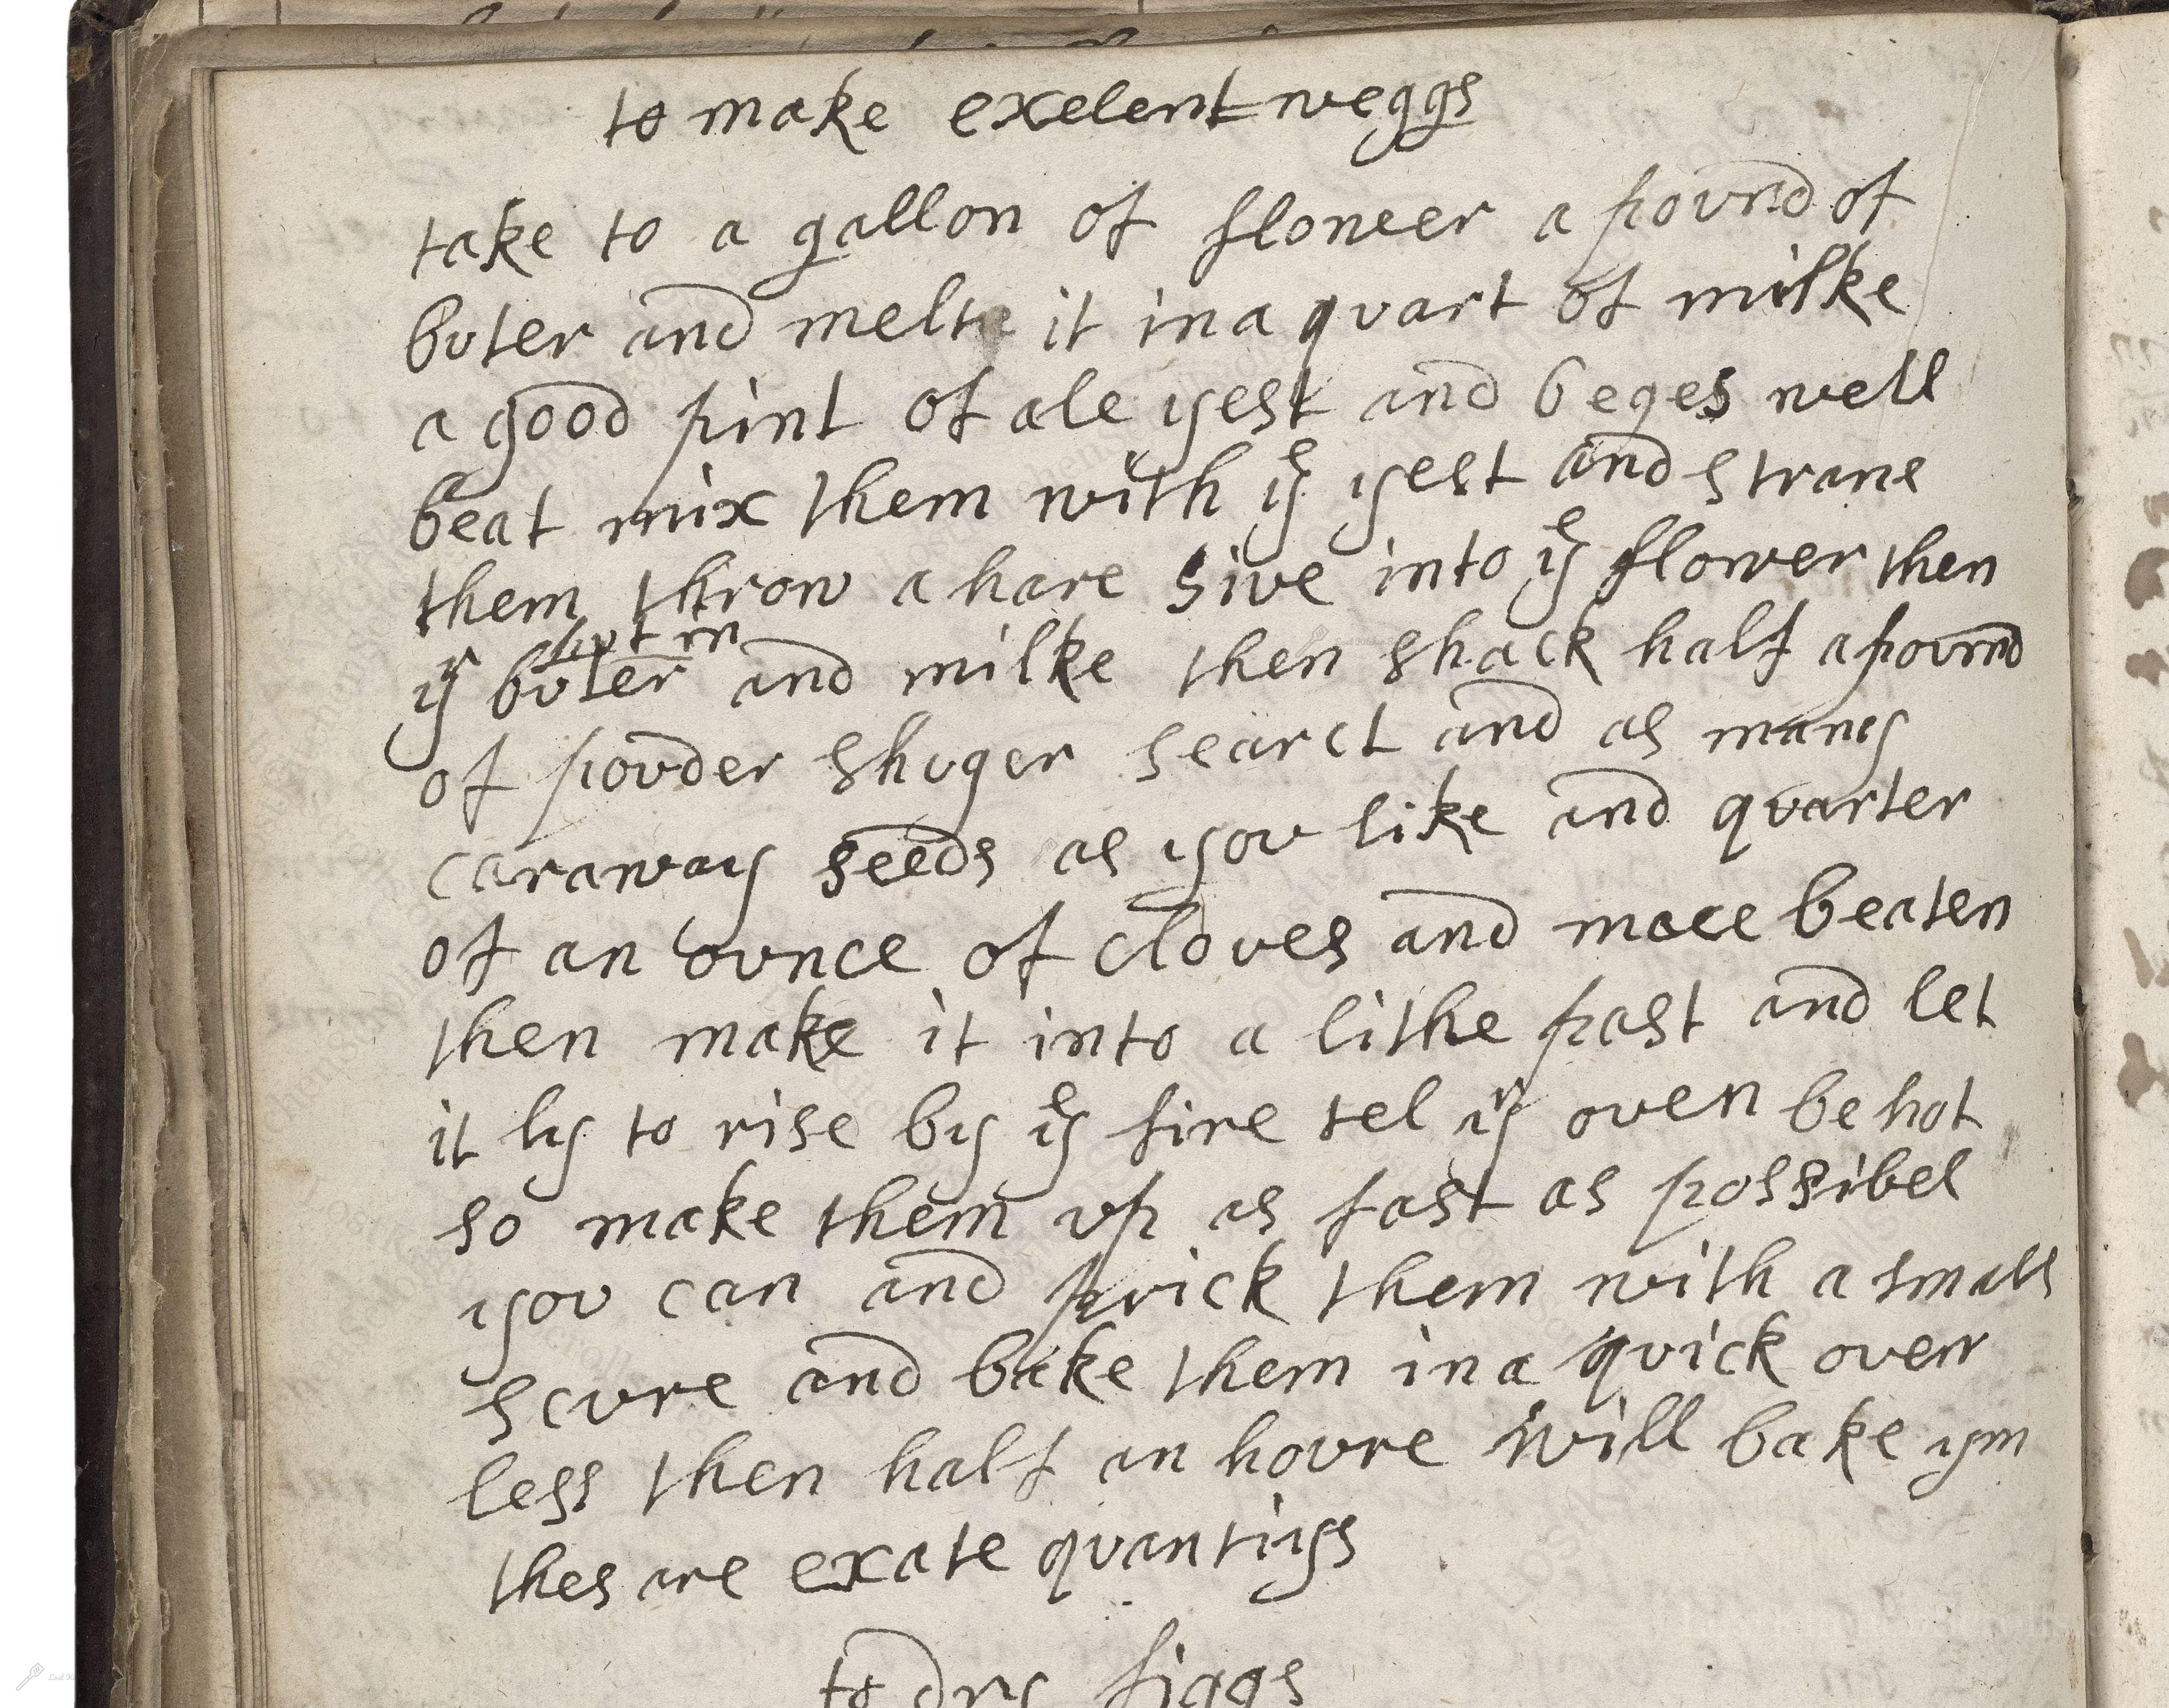 to make exelent weggs
take to a gallon of flower a povnd of
bvter and melte it in a qvart of milke
a good pint of ale yest and 6 eges well
beat mix them with yͤ yest and strane
them throw a hare sive into yͤ flower then
put in
yͬ bvter and milke then shack half a povnd
of povder shvger searct and as many
caraway seeds as yov like and qvarter
of an ovnce of cloves and mace beaten
then make it into a lithe past and let
it ly to rise by yͤ fire tel yͬ oven be hot
so make them vp as fast as possibel
yov can and prick them with a small
scvre and bake them in a qvick oven
less then half an hovre will bake ym
thes are exate qvantiys
to dry figgs